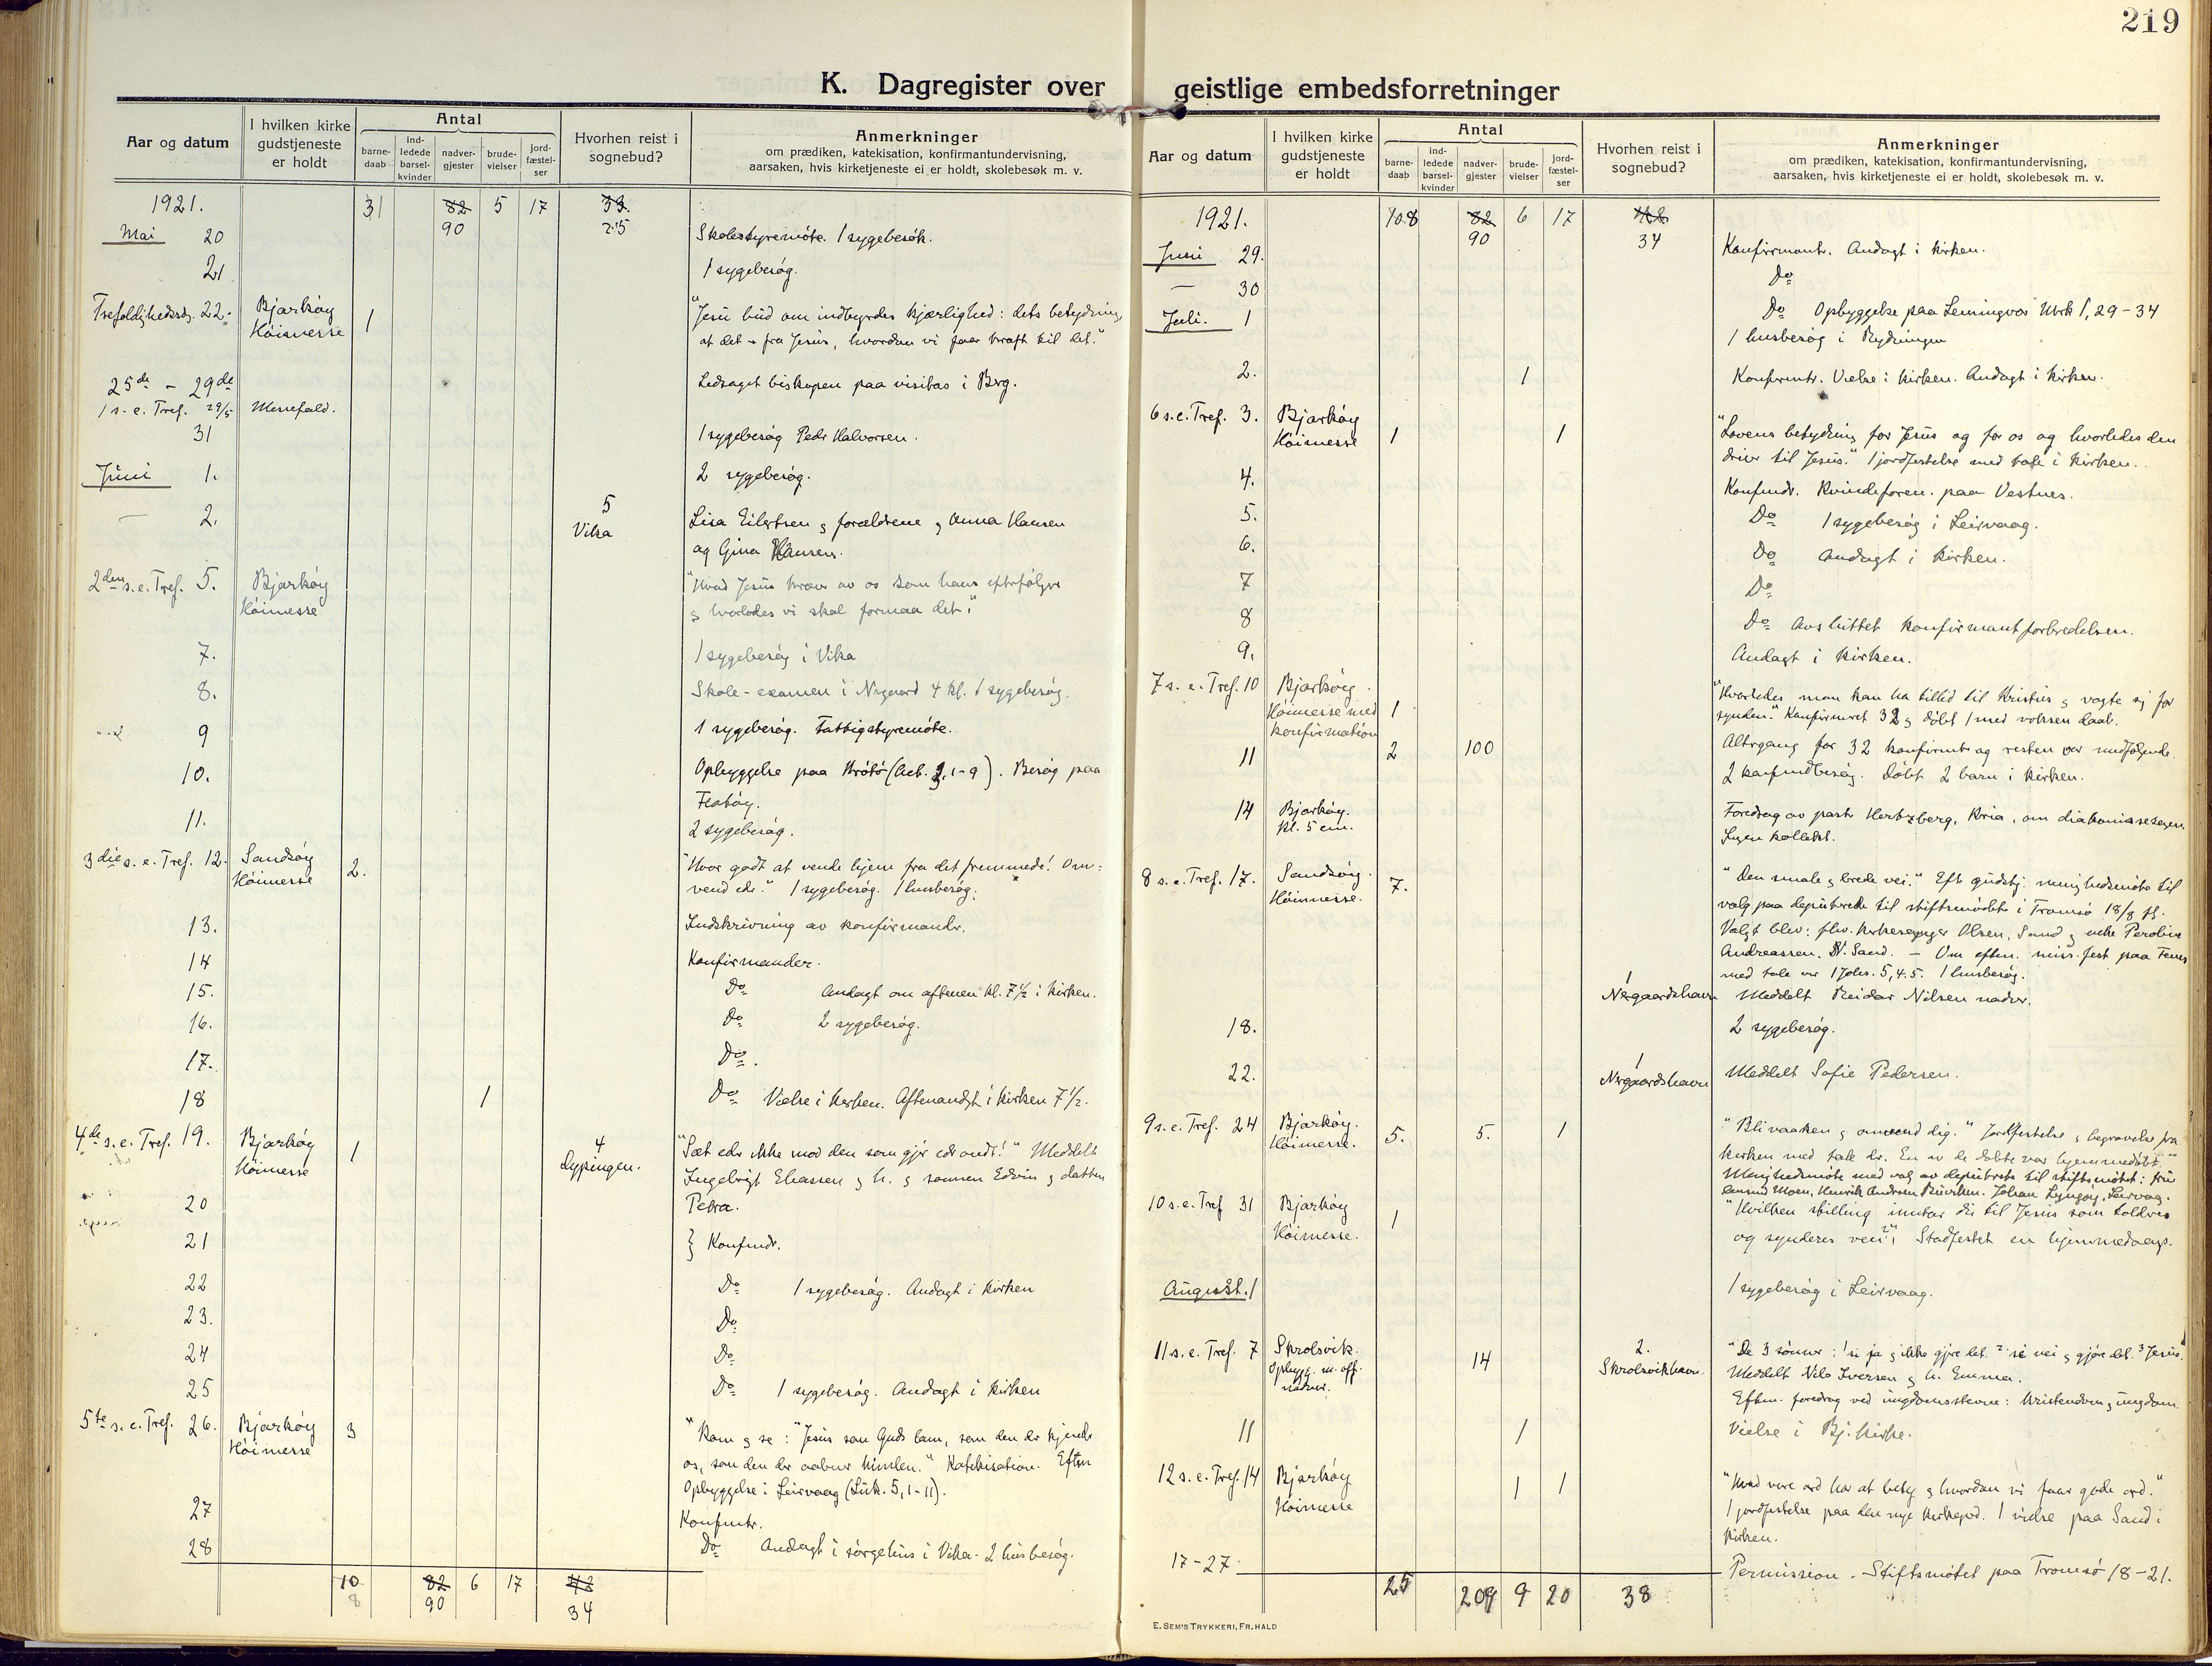 219
K. Dagregister over geistlige embedsforretninger
Aar og datum
I hvilken kirke gudstjeneste er holdt
Antal
barne-daab
ind-ledede barsel-kvinder
nadver-gjester
brude-vielser
jord-fæstel-ser
Hvorhen reist i sognebud?
Anmerkninger
om prædiken, katekisation, konfirmantundervisning,
aarsaken, hvis kirketjeneste ei er holdt, skolebesøk m. v.
1921. 31 82 5 17
Mai 20 90 25 Skolestyremöte. 1 sygebesök.
21 1 sygebesøg.
Trefoldighedssg. 22. Bjarkøy 1 "Jesu bud om indbyrdes kjærlighed: dets betydning,
Höimesse at det er fra Jesus, hvordan vi faar kraft til det."
25de - 29de Ledsaget biskopen paa visitas i Berg.
1 s. e. Tref. 29/5 Messefald.
31 1 sygebesøg Peder Halvorsen.
Juni 1. 2 sygebesøg.
2. 5 Vika Lisa Eilertsen og forældrene og Anna Hansen
og Gina Hansen.
2den s. e. Tref. 5. Bjarkøy "Hvad Jesus kræver av os som hans efterfølgere
Höimesse og hvorledes vi skal formaa det."
7. 1 sygebesøg i Vika
8. Skole-examen i Nergaard 4 kl. 1 sygebesøg.
9 1 sygebesøg. Fattigstyremöte.
10. Opbyggelse paa Krøtö (Act. 3, 1-9). Besøg paa
Flatøy.
11. 2 sygebesøg.
3die s. e. Tref. 12. Sandsøy 2. "Hvor godt at vende hjem fra det fremmede! Om-
Höimesse vend eder." 1 sygebesøg. 1 husbesøg.
13. Indskrivning av konfirmander.
14 Konfirmander.
15. Do Andagt om aftenen kl. 7½ i kirken.
16. Do 2 sygebesøg.
17. Do.
18 1 Do Vielse i kirken. Aftenandgt i kirken 7½.
4de s. e. Tref. 19. Bjarkøy 1 4 "Sæt eder ikke mod den som gjør eder ondt!" Meddelt
Höimesse Dypingen. Ingebrigt Eliassen og h. og sønnen Edvin og datteren
20 Petra.
21 } Konfmdr.
22 Do 1 sygebesøg. Andagt i kirken
23. Do
24 Do
25 Do 1 sygebesøg. Andagt i kirken
5te s. e. Tref. 26. Bjarkøy 3 "Kom og se: "Jesus som Guds lam, som den der kjender
Höimesse os, som den der aabner himlen." Katekisation. Eftm
Opbyggelse i Leirvaag (Luk. 5, 1-11).
27 Konfmtr.
28 Do Andagt i sørgehus i Vika. 2 husbesøg.
10 82 6 17 42
8 90 34
Aar og datum
I hvilken kirke gudstjeneste er holdt
Antal
barne-daab
ind-ledede barsel-kvinder
nadver-gjester
brude-vielser
jord-fæstel-ser
Hvorhen reist i sognebud?
Anmerkninger
om prædiken, katekisation, konfirmantundervisning,
aarsaken, hvis kirketjeneste ei er holdt, skolebesøk m. v.
1921. 82 6 17
90 34
Juni 29. Konfirmantr. Andagt i kirken.
30 Do
Juli. 1 Do Opbyggelse paa Lemingvær Mrk 1, 29-34
1 husbesøg i Rydningen
2. 1 Konfirmtr. Vielse i kirken. Andagt i kirken.
6 s. e. Tref. 3. Bjarkøy
Höimesse 1 1 "Lovens betydning for Jesus og for os og hvorledes den
driver til Jesus." 1 jordfestelse med tale i kirken.
4. Konfmdr. Kvindeforen. paa Vestnes.
5. Do 1 sygebesøg i Leirvaag.
6. Do Andagt i kirken.
7 Do
8 Do Avsluttet konfirmantforberedelsen.
9. Andagt i kirken.
7 s. e. Tref. 10 Bjarkøy 1 "Hvorledes man kan ha tillid til Kristus og vogte sig for
Höimesse med konfirmation synden." Konfirmeret 32 og døbt 1 med voksen daab.
11 2 100 Altergang for 32 konfirmtr og resten var medfølgende.
2 konfmdbesøg. Døbt 2 barn i kirken.
14 Bjarkøy. Foredrag av pastor Hertzberg, Kria, om diakonissesagen
kl. 5 em. Ingen kollekt.
8 s. e. Tref. 17. Sandsøy. 7. "Den smale og brede vei." Eft gudstj. menighedsmöte til
Höimesse. valg paa deputerede til stiftsmödet i Tromsø 18/8 ff.
Valgt blev: fhv. kirkesanger Olsen, Sand og enke Peroline
Andreassen, N. Sand. - Om eftm. miss. fest paa Fenes
med tale over 1 Johs. 5, 4.5. 1 husbesøg.
1 Nergaardshavn Meddelt Reidar Nilsen nadver.
18. 2 sygebesøg.
22. 1 Nergaardshavn Meddelt Sofie Pedersen.
9 s. e. Tref. 24 Bjarkøy. 5. 5. 1 "Bli vaaken og omvend dig." Jordfestelse og begravelse fra
Höimesse. kirken med tale der. En av de døbte var hjemmedøbt.
Menighedsmöte med valg av deputerte til stiftsmötet: fru
Moen, Henrik Andersen Johan Lyngøy, Leirvaag.
10 s. e. Tref 31 Bjarkøy 1 "Hvilken stilling inntar du til Jesus som tolderes
Höimesse. og synderes ven?" Stadfestet en hjemmedaap.
August. 1 1 sygebesøg i Leirvaag.
11 s. e. Tref. 7 Skrolsvik. 14 2. "De 3 sönner: 1 si ja og ikke gjøre det. 2 si nei og gjøre det. 3 Jesus."
Opbygg. m. off. nadver. Skrolsvikhavn. Meddelt Nils Iversen og h. Emma.
Eftm. foredrag ved ungdomsstevne: kristendom og ungdom.
11 1 Vielse i Bj. kirke.
12 s. e. Tref. 14 Bjarkøy 1 1 "Hvad vore ord har at bety og hvordan vi faar gode ord."
Höimesse 1 jordfestelse paa den nye kirkegrd. 1 vielse paa Sand i
kirken.
17-27 Permission. Stiftsmötet paa Tromsö 18-21.
25 209 9 20 38
E. SEM'S TRYKKERI, FR.HALD